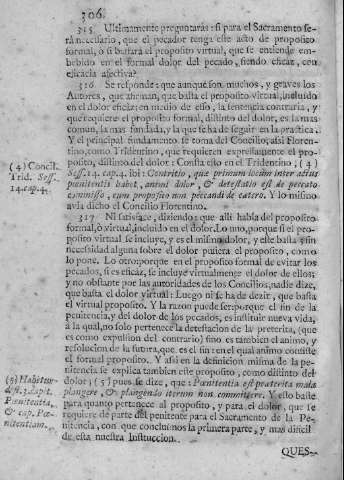 306.
315 Ultimamente preguntaràs: si para el Sacramento se-
rà necessario, que el pecador tenga este acto de proposito
formal, ò si bastarà el proposito virtual, que se entiende em-
bebido en el formal dolor del pecado, siendo eficaz, con
eficacia afectiva?
316 Se responde: que aunque son muchos, y graves los
Autores, que afirman, que basta el proposito virtual, incluido
en el dolor eficaz; en medio de esso, la sentencia contraria, y
que requiere el proposito formal, distinto del dolor, es la mas
comun, la mas fundada, y la que se ha de seguir en la practica.
Y el principal fundamento se toma del Concilio, assi Floren-
tino, como Tridentino, que requieren expressamente el pro-
posito, distinto del dolor: Consta esto en el Tridentino, (4)
Sess. 14. cap. 4. ibi: Contritio, que primum locum inter actus
pœnitentis habet, animi dolor, & detestatio est de peccato
commisso, cum proposito non peccandi de cætero. Y lo mismo
avia dicho el Concilio Florentino.
(4) Concil.
Trid. Sess.
14. cap. 4.
317 Ni satisface, diziendo: que alli habla del proposito
formal, ò virtual, incluido en el dolor. Lo uno, porque si el pro-
posito virtual se incluye, y es el mismo dolor, y este basta; sin
necessidad alguna sobre el dolor pusiera el proposito, como
lo pone. Lo otro: porque en el proposito formal de evitar los
pecados, si es eficàz, se incluye virtualmente el dolor de ellos;
y no obstante por las autoridades de los Concilios, nadie dize,
que basta el dolor virtual: Luego ni se ha de dezir, que basta
el proposito virtual. Y la razon puede ser: porque el fin de la
penitencia, y del dolor de los pecados, es instituir nueva vida,
à la qual, no solo pertenece la detestacion de la preterita, (que
es como expulsion del contrario) sino es tambien el animo, y
resolucion de la futura, que es el fin: en el qual animo consiste
el formal proposito. Y assi en la definicion misma de la pe-
nitencia se explica tambien este proposito, como distinto del
dolor; (5) pues se dize, que: Pœnitentia est præterita mala
plangere, & plangenda iterum non committere. Y esto baste
para quanto pertenece al proposito, y para el dolor, que se
requiere de parte del penitente para el Sacramento de la Pe-
nitencia, con que concluimos la primera parte, y mas dificil
de esta nuestra Instruccion.
(5) Habetur
dist. 3. capit.
Pœnitentia,
& cap. Pœ-
nitentiam.
QUES-